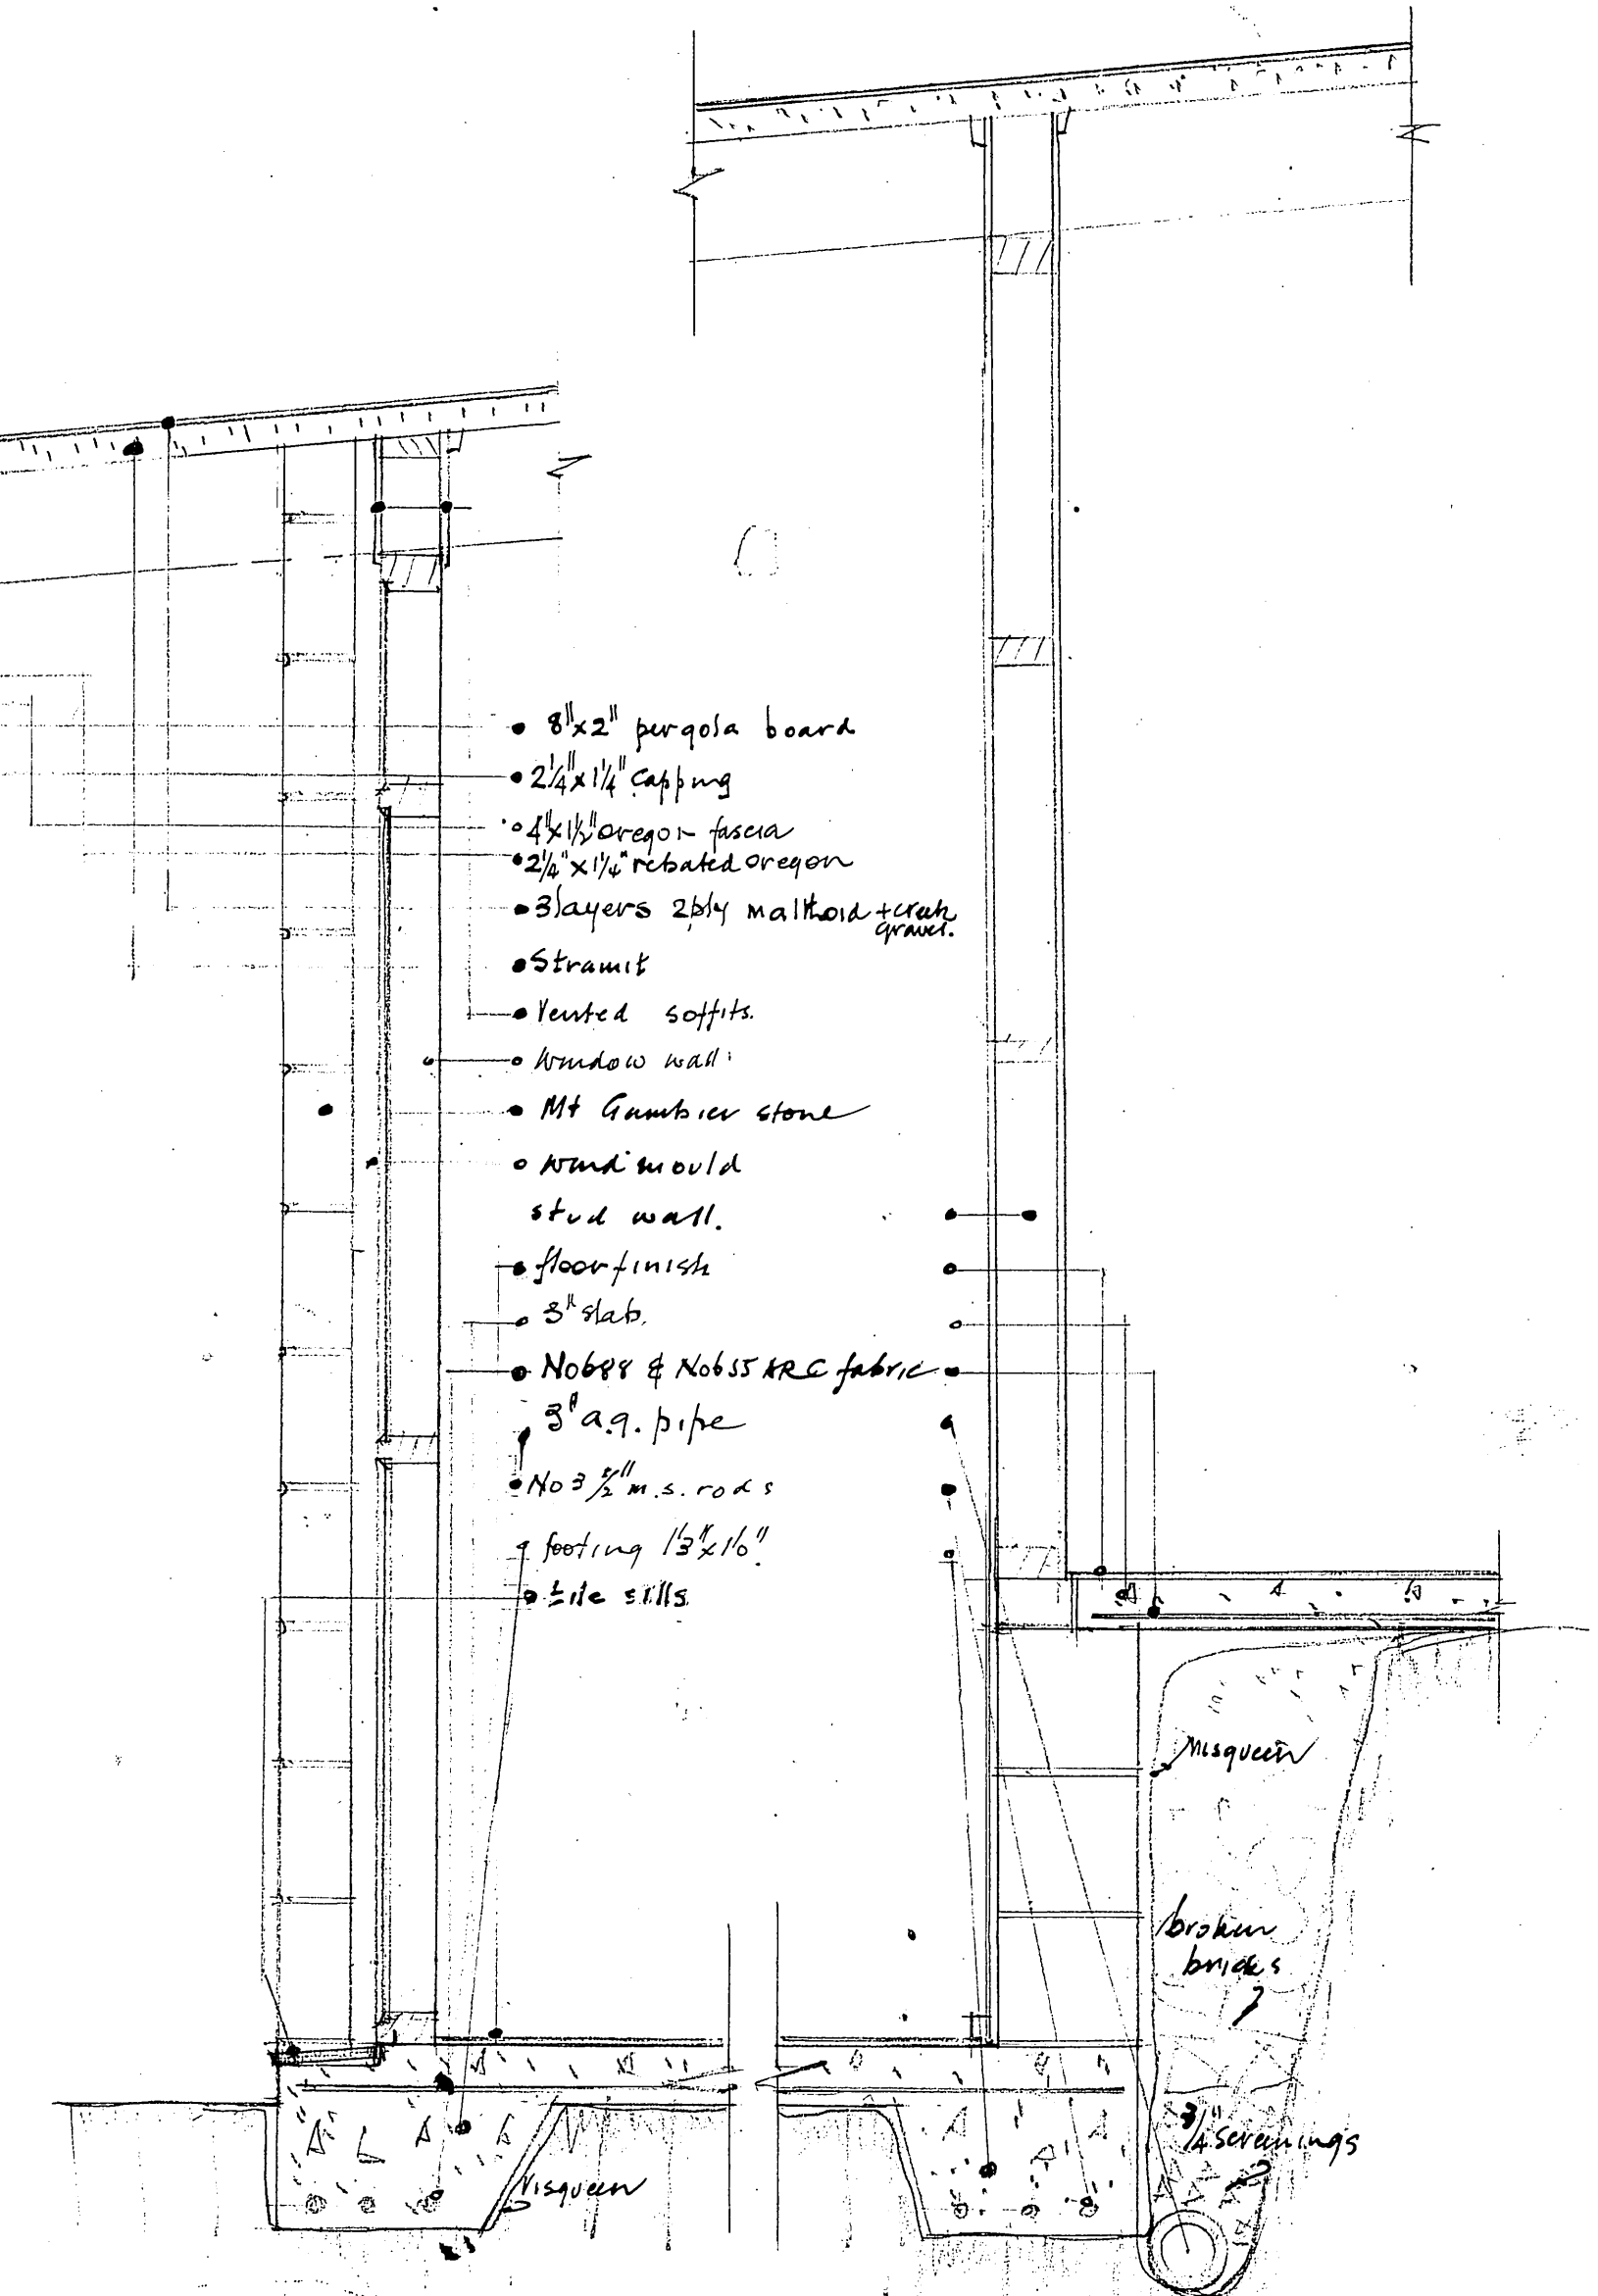 8"x2" pergola board
2¼"x1¼" capping
4"x1½" oregon fascia
2¼"x1¼" rebated oregon
3 layers 2ply malthoid + creek
gravel.
Stramit
Vented soffits.
window wall
Mt Gambier stone
wind mould
stud wall.
floor finish
3" slab.
No688 & No655 ARC fabric
3" a.g. pipe
No 3 ½" m.s. rods
footing 1'3"x1'0"
tile sills
Visqueen
broken
bricks
¾" screenings
Visqueen